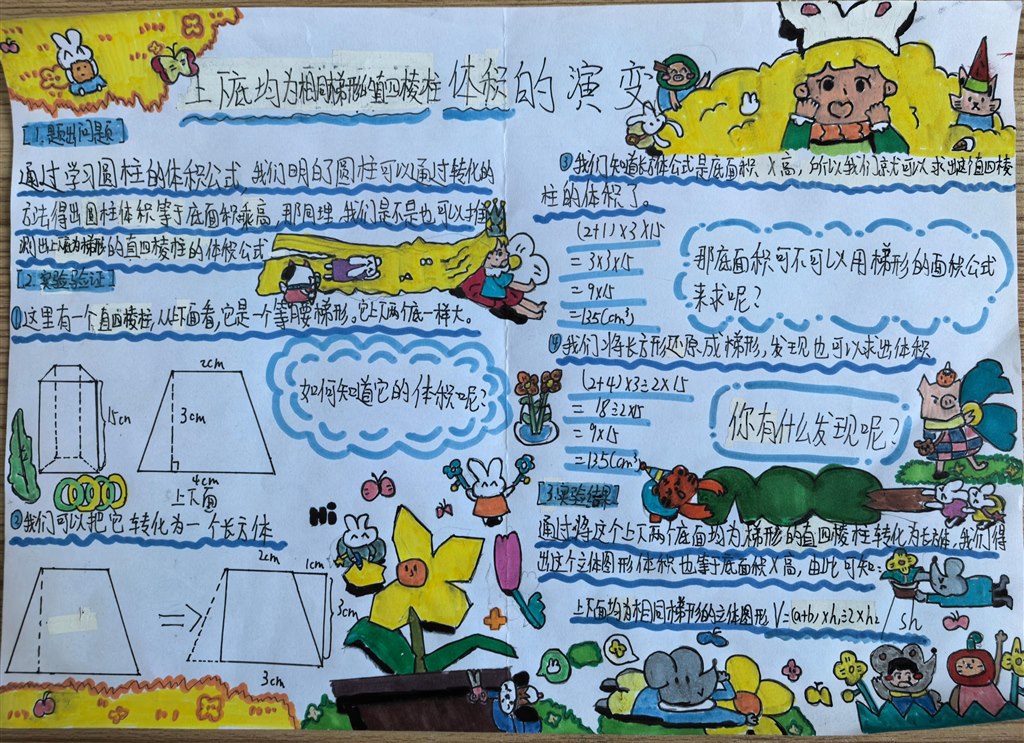 上下底均为相同梯形的直四棱柱体积的演变
1.题出问题
通过学习圆柱的体积公式,我们明白了圆柱可以通过转化的
方法得出圆柱体积等于底面积乘高,那同理,我们是不是也可以推
测出上下面为梯形的直四棱柱的体积公式
2.实验验证
①这里有一个直四棱柱,从上下面看,它是一个等腰梯形。它上下两个底一样大。
15cm
2cm
3cm
4cm
上下面
如何知道它的体积呢?
②我们可以把它转化为一个长方体
2cm
1cm
3cm
3cm
Hi
③我们知道长方体公式是底面积×高,所以我们就可以求出这个直四棱
柱的体积了。
(2+1)×3×15
=3×3×15
=9×15
=135(cm³)
那底面积可不可以用梯形的面积公式
来求呢?
④我们将长方形还原成梯形,发现也可以求出体积
(2+4)×3÷2×15
=18÷2×15
=9×15
=135(cm³)
你有什么发现呢?
3.实验结果
通过将这个上下两个底面均为梯形的直四棱柱转化为长方体,我们得
出这个立体图形体积也等于底面积×高,由此可知:
上下面均为相同梯形的立体图形V=(a+b)×h₁÷2×h₂
Sh